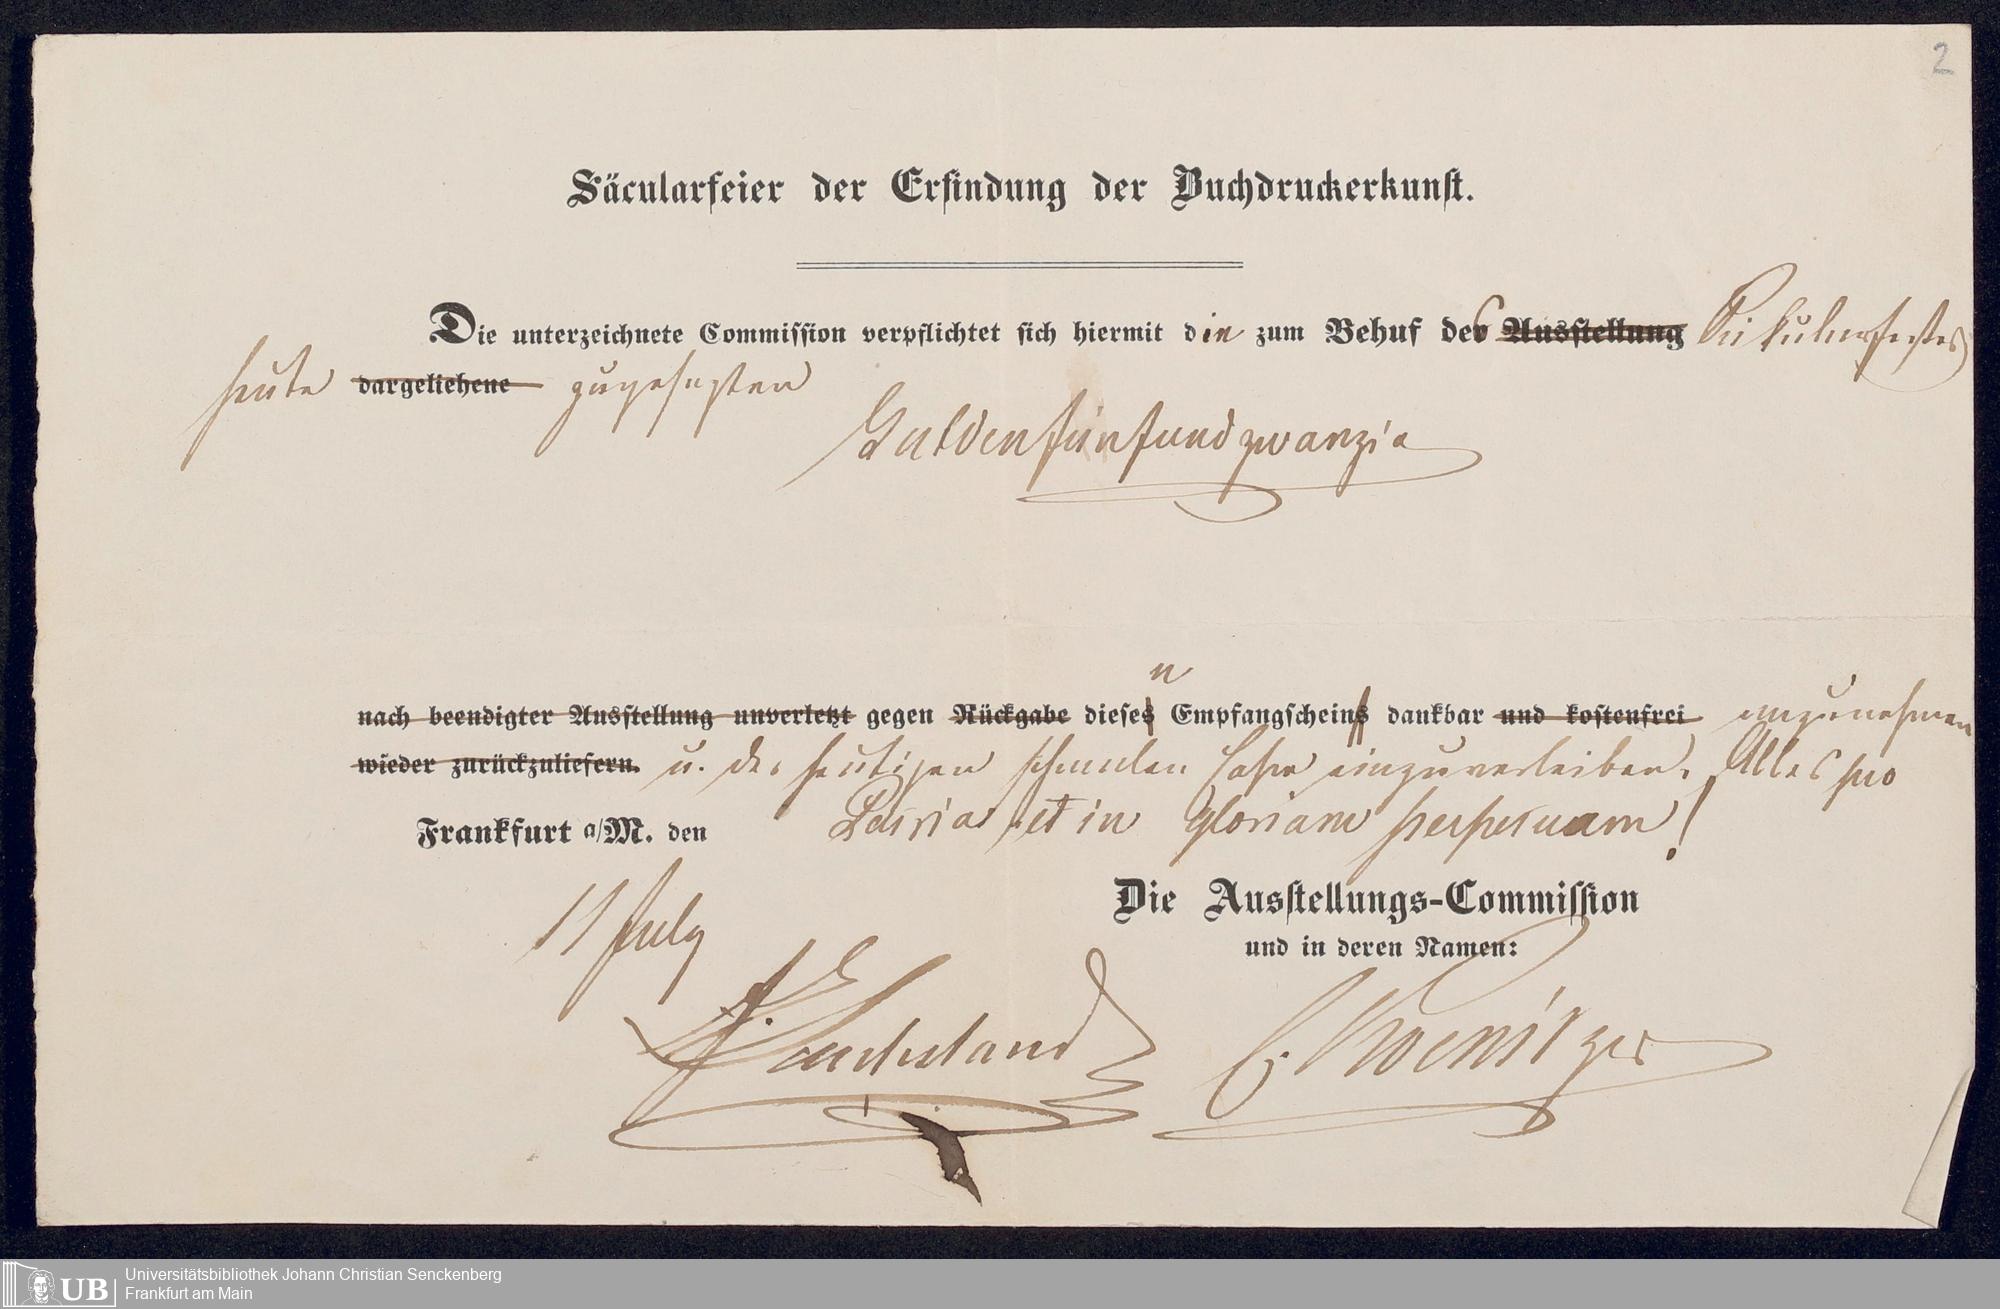 2
Säcularfeier der Erfindung der Buchdruckerkunst.
Die unterzeichnete Commission verpflichtet sich hiermit die zum Behuf des Ausstellung Säkularfestes
heute dargeliehene zugesagten
Gulden fünfundzwanzig
n
nach beendigter Ausstellung unverletzt gegen Rückgabe dieses Empfangscheins dankbar und kostenfrei anzunehmen
wieder zurückzuliefern. u. der heutigen einzuverleiben. Alles pro
Frankfurt a/M. den Patria et in gloriam perpetuam!
11 July
Die Ausstellungs-Commission
und in deren Namen:
UB
Universitätsbibliothek Johann Christian Senckenberg
Frankfurt am Main